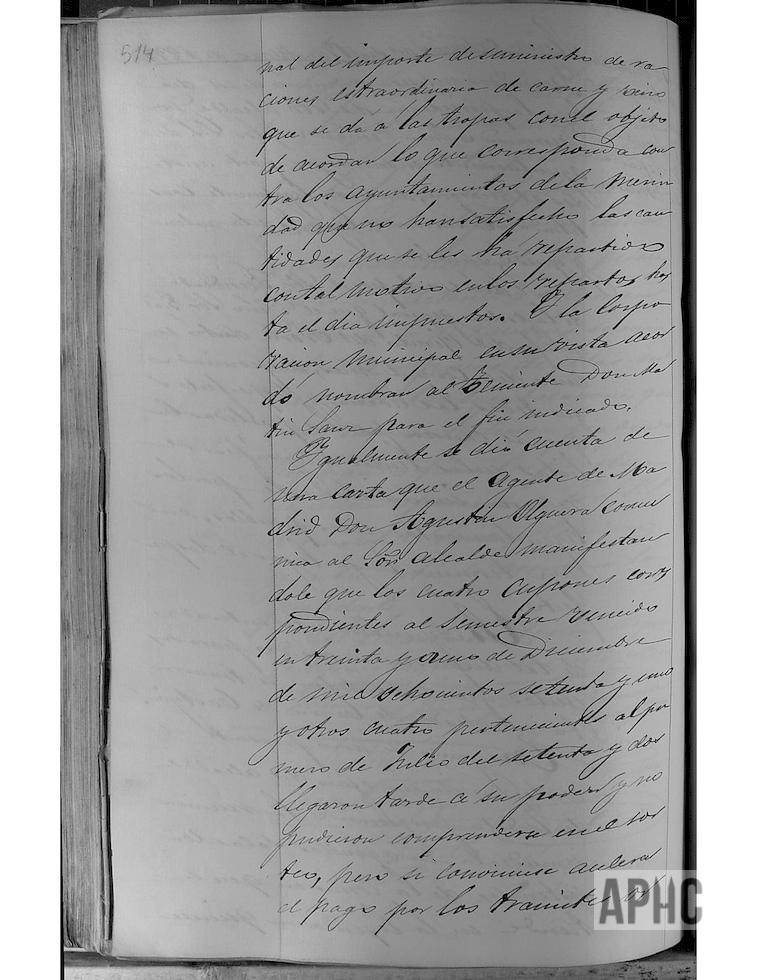 514
nal del importe de suministro de ra
ciones estraordinaria de carne y vino
que se dá á las tropas con el objeto
de acordar lo que corresponda con
tra los ayuntamientos de la Merin
dad que no han satisfecho las can
tidades que se les ha repartido
con tal motivo en los repartos has
ta el dia impuestos. Y la Corpo
racion municipal en su vista acor
dó nombrar al Teniente Don Ma
tin Sanz para el fin indicado.
Ygualmente se dió cuenta de
una carta que el agente de Ma
drid Don Agustin Olguera comu
nica al Sor. Alcalde manifestan
dole que los cuatro cupones corres
pondientes al semestre vencido
en treinta y uno de Diciembre
de mil ochocientos setenta y uno
y otros cuatro pertenecientes al pri
mero de Julio del setenta y dos
llegaron tarde á su poder y no
pudieron comprenderse en el sor
teo, pero si conviniese acelerar
el pago por los tramites
APHC